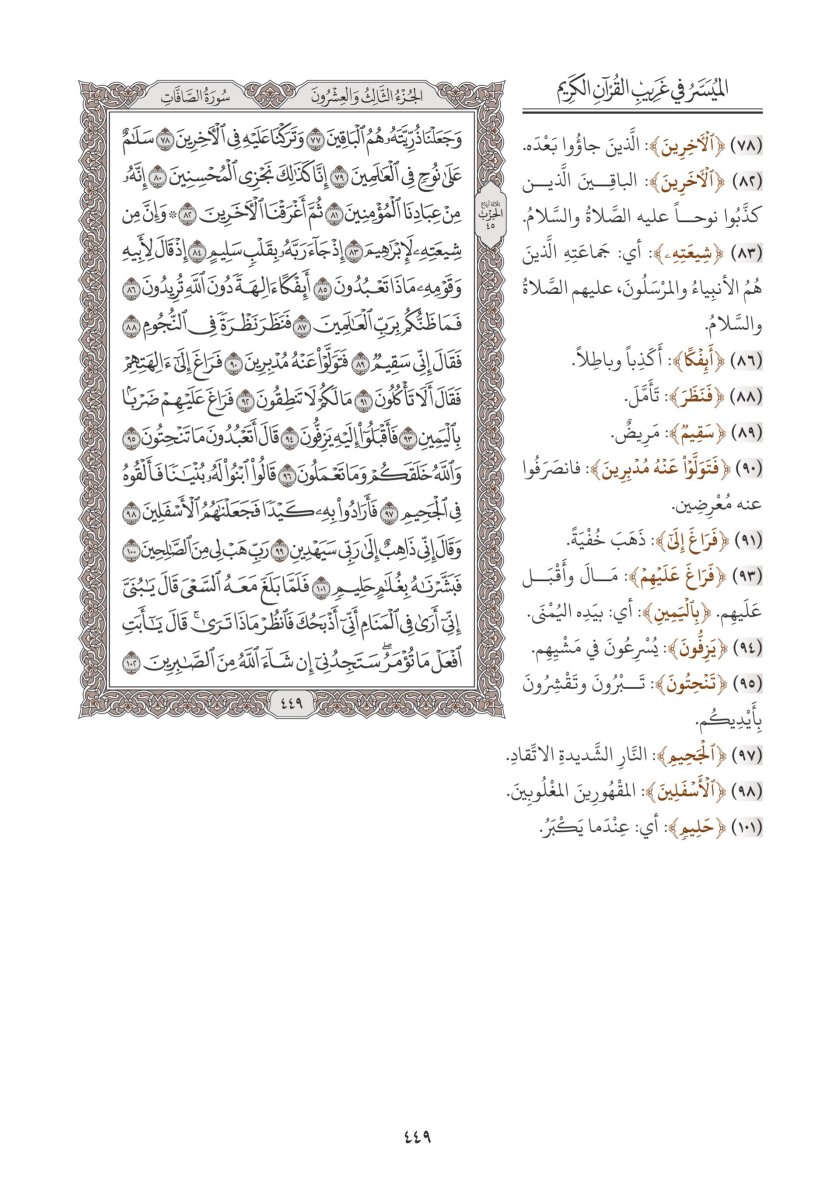 الميَسَّرُ في غَرِيبِ القُرْآنِ الكَرِيمِ
(٧٨) ﴿ٱلْأٓخِرِينَ﴾: الَّذينَ جاؤُوا بَعْدَه.
(٨٢) ﴿ٱلْأٓخَرِينَ﴾: الباقِـينَ الَّذيـن
كذَّبُوا نوحـاً عليه الصَّلاةُ والسَّلامُ.
(٨٣) ﴿شِيعَتِهِۦ﴾: أي: جَماعَتِهِ الَّذينَ
هُمُ الأنبِياءُ والمرْسَلُونَ، عليهم الصَّلاةُ
والسَّلامُ.
(٨٦) ﴿أَئِفْكًا﴾: أَكَذِباً وباطِلاً.
(٨٨) ﴿فَنَظَرَ﴾: تَأَمَّلَ.
(٨٩) ﴿سَقِيمٌ﴾: مَرِيضٌ.
(٩٠) ﴿فَتَوَلَّوْاْ عَنْهُ مُدْبِرِينَ﴾: فانصَرَفُوا
عنه مُعْرِضِين.
(٩١) ﴿فَرَاغَ إِلَىٰٓ﴾: ذَهَبَ خُفْيَةً.
(٩٣) ﴿فَرَاغَ عَلَيْهِمْ﴾: مَـالَ وأَقْبَـل
عَلَيهِم. ﴿بِٱلْيَمِينِ﴾: أي: بيَدِه اليُمْنَى.
(٩٤) ﴿يَزِفُّونَ﴾: يُسْرِعُونَ في مَشْيِهِم.
(٩٥) ﴿تَنْحِتُونَ﴾: تَـبْرُونَ وتَقْشِرُونَ
بِأَيْدِيكُم.
(٩٧) ﴿ٱلْجَحِيمِ﴾: النَّارِ الشَّديدةِ الاتِّقادِ.
(٩٨) ﴿ٱلْأَسْفَلِينَ﴾: المقْهُورِينَ المغْلُوبِينَ.
(١٠١) ﴿حَلِيمٍ﴾: أي: عِنْدَما يَكْبَرُ.
الجُزْءُ الثَّالِثُ وَالعِشْرُونَ سُورَةُ الصَّافَّاتِ
وَجَعَلْنَا ذُرِّيَّتَهُۥ هُمُ ٱلْبَاقِينَ ٧٧ وَتَرَكْنَا عَلَيْهِ فِى ٱلْأٓخِرِينَ ٧٨ سَلَٰمٌ
عَلَىٰ نُوحٍ فِى ٱلْعَٰلَمِينَ ٧٩ إِنَّا كَذَٰلِكَ نَجْزِى ٱلْمُحْسِنِينَ ٨٠ إِنَّهُۥ
مِنْ عِبَادِنَا ٱلْمُؤْمِنِينَ ٨١ ثُمَّ أَغْرَقْنَا ٱلْأٓخَرِينَ ٨٢ ۞ وَإِنَّ مِن
شِيعَتِهِۦ لَإِبْرَٰهِيمَ ٨٣ إِذْ جَآءَ رَبَّهُۥ بِقَلْبٍ سَلِيمٍ ٨٤ إِذْ قَالَ لِأَبِيهِ
وَقَوْمِهِۦ مَاذَا تَعْبُدُونَ ٨٥ أَئِفْكًا ءَالِهَةً دُونَ ٱللَّهِ تُرِيدُونَ ٨٦
فَمَا ظَنُّكُم بِرَبِّ ٱلْعَٰلَمِينَ ٨٧ فَنَظَرَ نَظْرَةً فِى ٱلنُّجُومِ ٨٨
فَقَالَ إِنِّى سَقِيمٌ ٨٩ فَتَوَلَّوْاْ عَنْهُ مُدْبِرِينَ ٩٠ فَرَاغَ إِلَىٰٓ ءَالِهَتِهِمْ
فَقَالَ أَلَا تَأْكُلُونَ ٩١ مَا لَكُمْ لَا تَنطِقُونَ ٩٢ فَرَاغَ عَلَيْهِمْ ضَرْبًۢا
بِٱلْيَمِينِ ٩٣ فَأَقْبَلُوٓاْ إِلَيْهِ يَزِفُّونَ ٩٤ قَالَ أَتَعْبُدُونَ مَا تَنْحِتُونَ ٩٥
وَٱللَّهُ خَلَقَكُمْ وَمَا تَعْمَلُونَ ٩٦ قَالُواْ ٱبْنُواْ لَهُۥ بُنْيَٰنًا فَأَلْقُوهُ
فِى ٱلْجَحِيمِ ٩٧ فَأَرَادُواْ بِهِۦ كَيْدًا فَجَعَلْنَٰهُمُ ٱلْأَسْفَلِينَ ٩٨
وَقَالَ إِنِّى ذَاهِبٌ إِلَىٰ رَبِّى سَيَهْدِينِ ٩٩ رَبِّ هَبْ لِى مِنَ ٱلصَّٰلِحِينَ ١٠٠
فَبَشَّرْنَٰهُ بِغُلَٰمٍ حَلِيمٍ ١٠١ فَلَمَّا بَلَغَ مَعَهُ ٱلسَّعْىَ قَالَ يَٰبُنَىَّ
إِنِّىٓ أَرَىٰ فِى ٱلْمَنَامِ أَنِّىٓ أَذْبَحُكَ فَٱنظُرْ مَاذَا تَرَىٰ ۚ قَالَ يَٰٓأَبَتِ
ٱفْعَلْ مَا تُؤْمَرُ ۖ سَتَجِدُنِىٓ إِن شَآءَ ٱللَّهُ مِنَ ٱلصَّٰبِرِينَ ١٠٢
ثلاثة أرباع
الحزب
٤٥
٤٤٩
٤٤٩